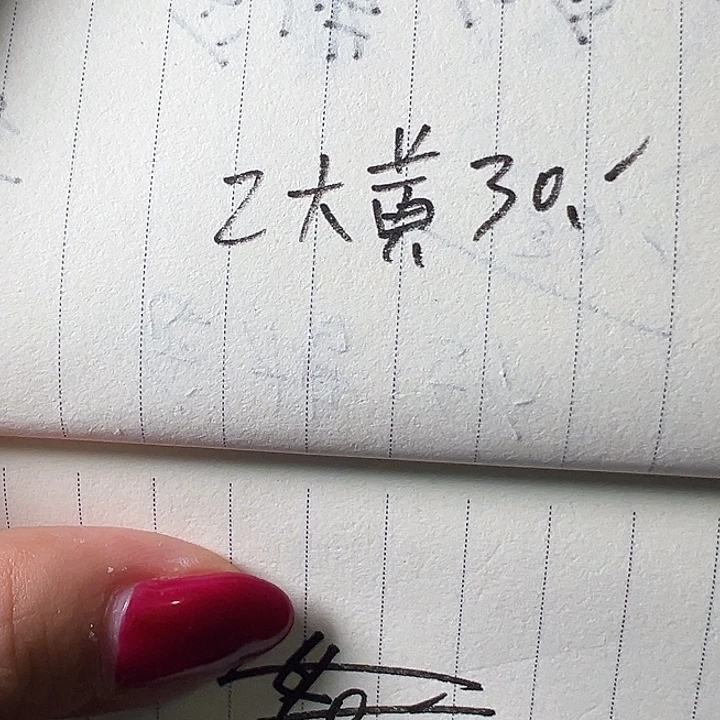 2大黄30、